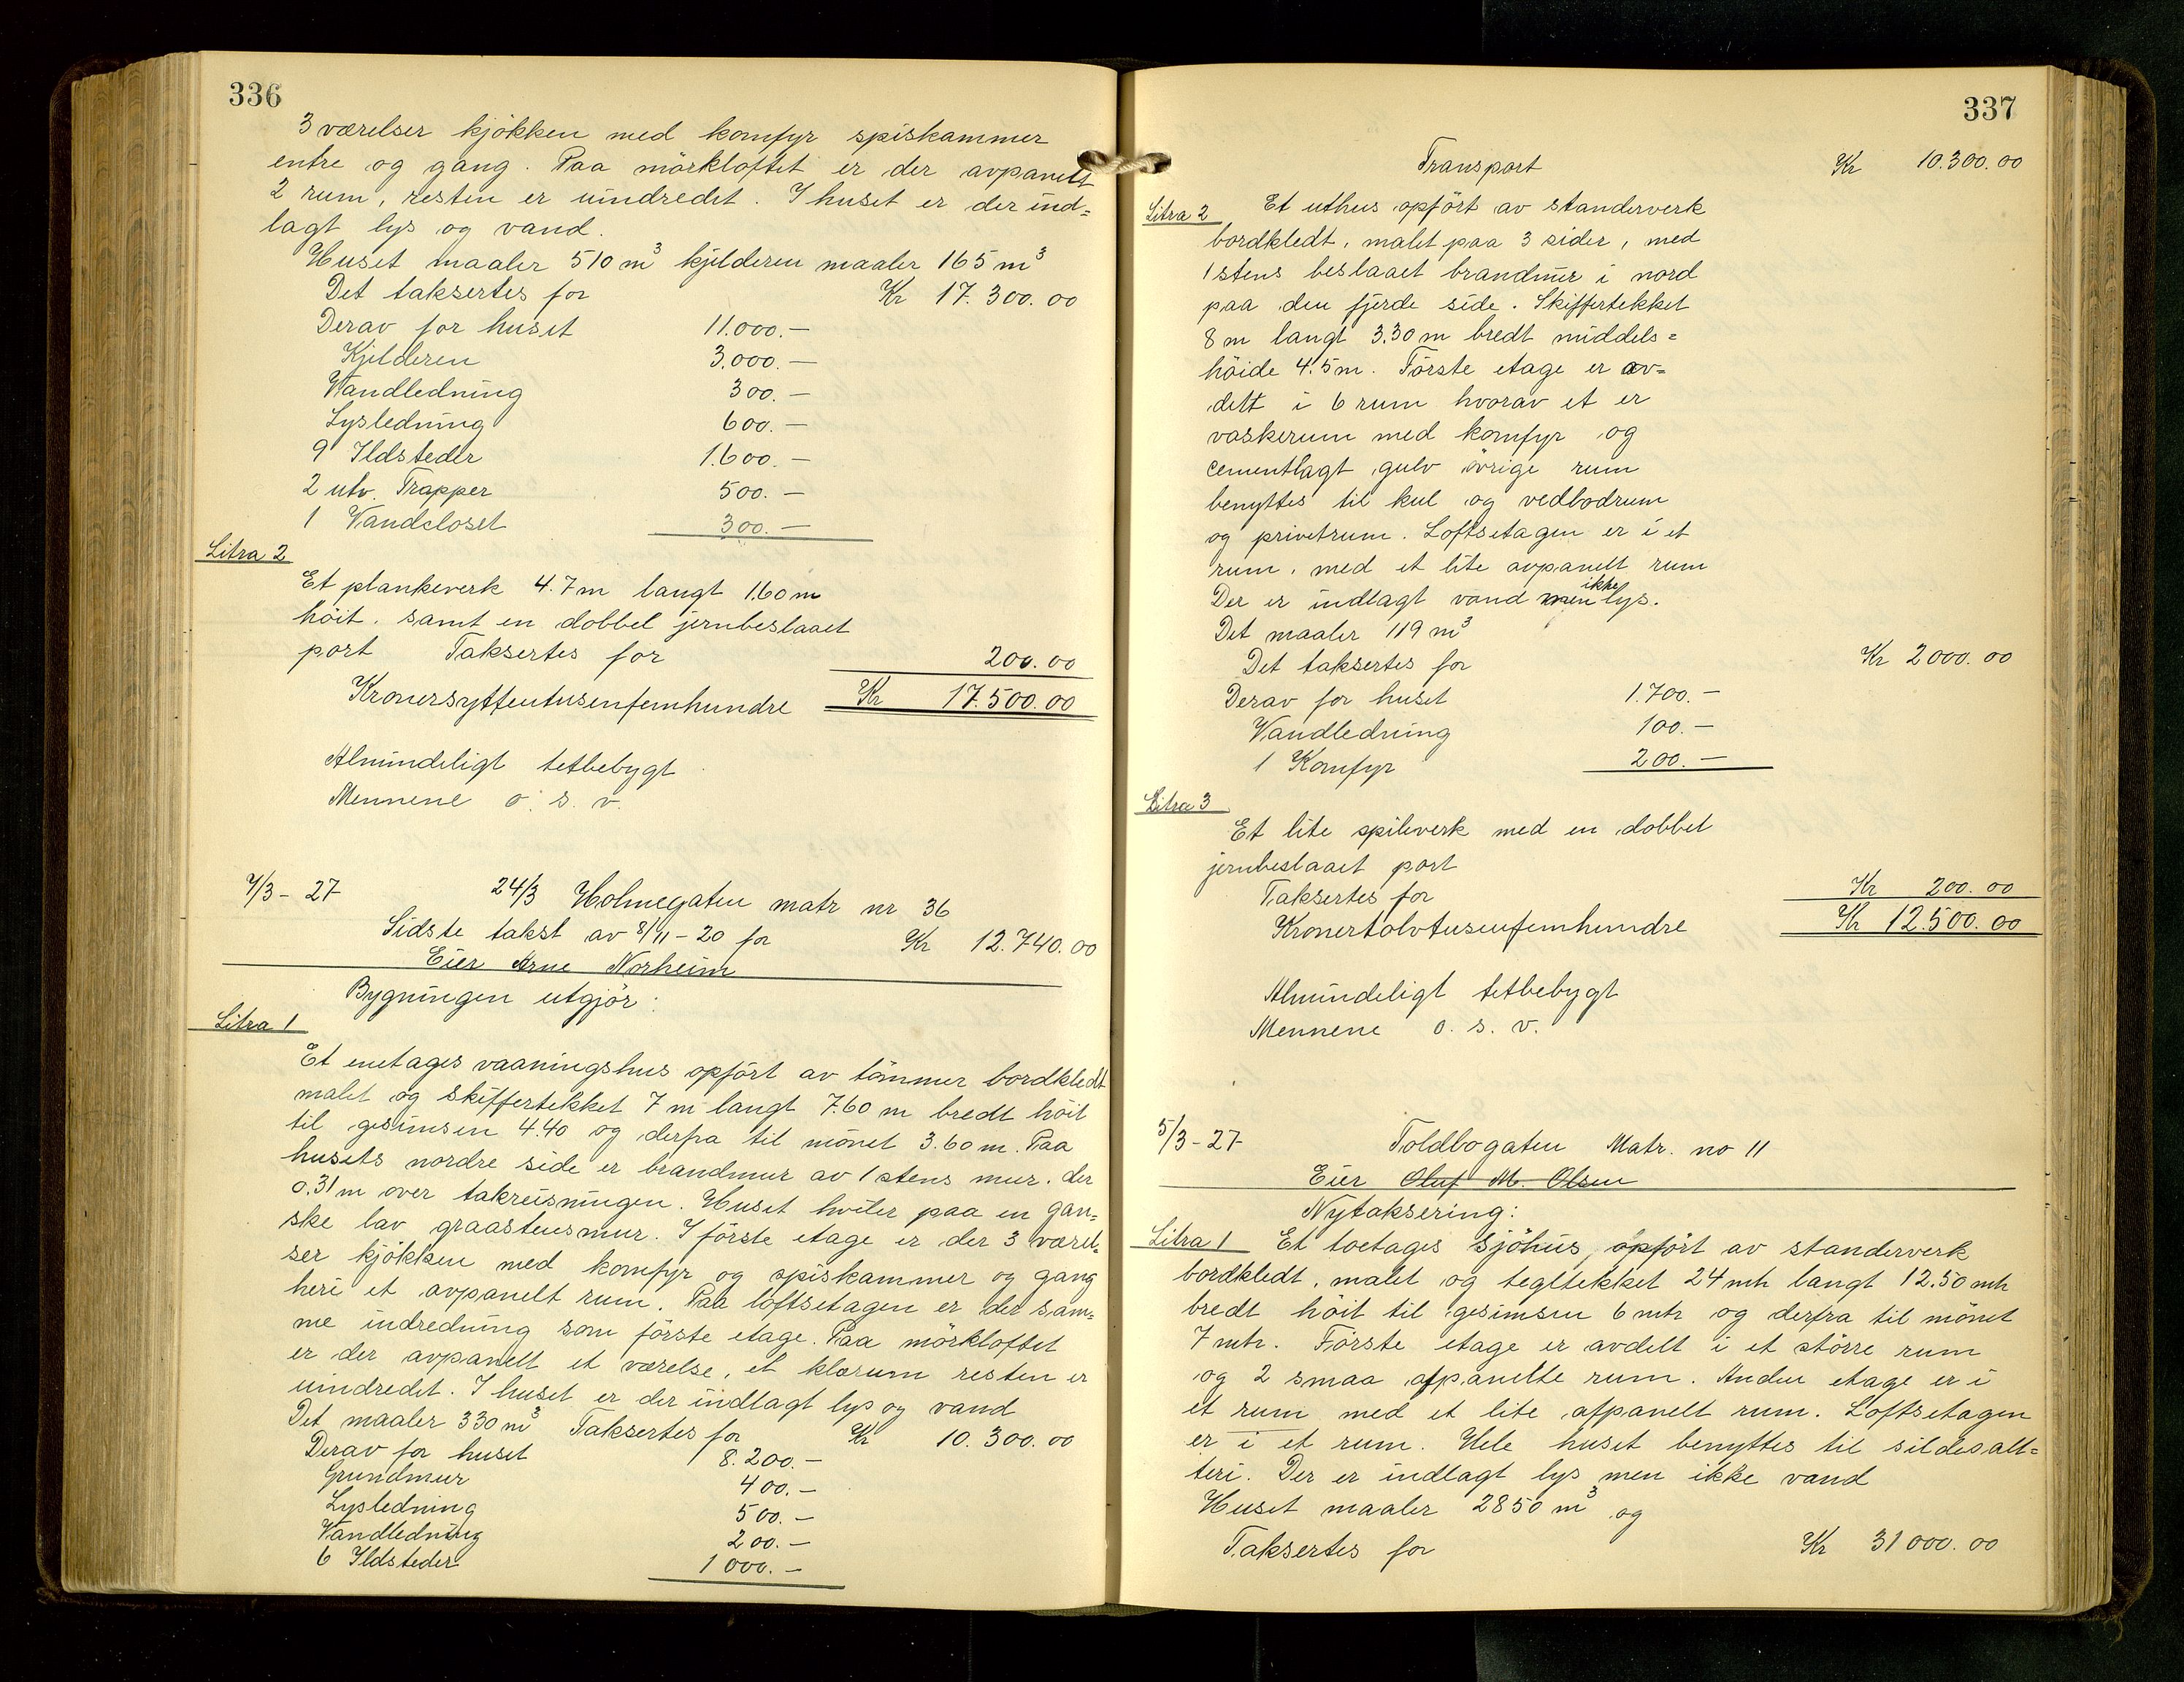 336
3 værelser kjökken med komfyr spiskammer
entre og gang. Paa mörkloftet er der avpanelt
2 rum, resten er uindredet. I huset er der ind=
lagt lys og vand.
Huset maaler 510 m³ kjelderen maaler 165 m³
Det taksertes for Kr 17.300.00
Derav for huset 11.000.-
Kjelderen 3.000.-
Vandledning 300.-
Lysledning 600.-
9 Ildsteder 1.600.-
2 utv. Trapper 500.-
1 Vandcloset 300.-
Litra 2
Et plankeverk 4.7 m langt 1.60 m
höit, samt en dobbel jernbeslaaet
port Taksertes for 200.00
Kronersyttentusenfemhundre Kr 17.500.00
Almindeligt tetbebygt
Mennene o. s. v.
7/3 - 27 24/3 Holmegaten matr nr 36
Sidste takst av 8/11 - 20 for Kr 12.740.00
Eier Arne Norheim
Bygningen utgjör:
Litra 1
Et enetages vaaningshus opfört av tömmer bordkledt
malet og skiffertekket 7 m langt 7.60 m bredt höit
til gesimsen 4.40 og derfra til mönet 3.60 m. Paa
husets nordre side er brandmur av 1 stens mur. der
0.31 m over takreisningen. Huset hviler paa en gan=
ske lav graastensmur. I förste etage er der 3 værel=
ser kjökken med komfyr og spiskammer og gang
heri et avpanelt rum. Paa loftsetagen er det sam=
me indredning som förste etage. Paa mörkloftet
er der avpanelt et værelse, et klærum resten er
uindredet. I huset er der indlagt lys og vand
Det maaler 330 m³ Taksertes for Kr 10.300.00
Derav for huset 8.200.-
Grundmur 400.-
Lysledning 500.-
Vandledning 200.-
6 Ildsteder 1000.-
337
Transport Kr 10.300.00
Litra 2 Et uthus opfört av standerverk
bordkledt, malet paa 3 sider, med
1 stens beslaaet brandmur i nord
paa den fjerde side. Skiffertekket
8 m langt 3.30 m bredt middels=
höide 4.5 m. Förste etage er av=
delt i 6 rum hvorav et er
vaskerum med komfyr og
cementlagt gulv övrige rum
benyttes til kul og vedbodrum
og privetrum. Loftsetagen er i et
rum, med et lite avpanelt rum
Der er indlagt vand men ikke lys.
Det maaler 119 m³
Det taksertes for Kr 2000.00
Derav for huset 1.700.-
Vandledning 100.-
1 Komfyr 200.-
Litra 3
Et lite spileverk med en dobbel
jernbeslaaet port
Taksertes for Kr 200.00
Kronertolvtusenfemhundre Kr 12.500.00
Almindeligt tetbebygt
Mennene o. s. v.
5/3 - 27 Toldbogaten Matr. no 11
Eier Oluf M. Olsen
Nytaksering:
Litra 1 Et toetages sjöhus, opfört av standerverk
bordkledt, malet og tegltekket 24 mtr langt 12.50 mtr
bredt höit til gesimsen 6 mtr og derfra til mönet
7 mtr. Förste etage er avdelt i et större rum
og 2 smaa afpanelte rum. Anden etage er i
et rum med et lite afpanelt rum. Loftsetagen
er i et rum. Hele huset benyttes til sildesalt=
teri. Der er indlagt lys men ikke vand
Huset maaler 2850 m³ og
Taksertes for Kr 31000.00